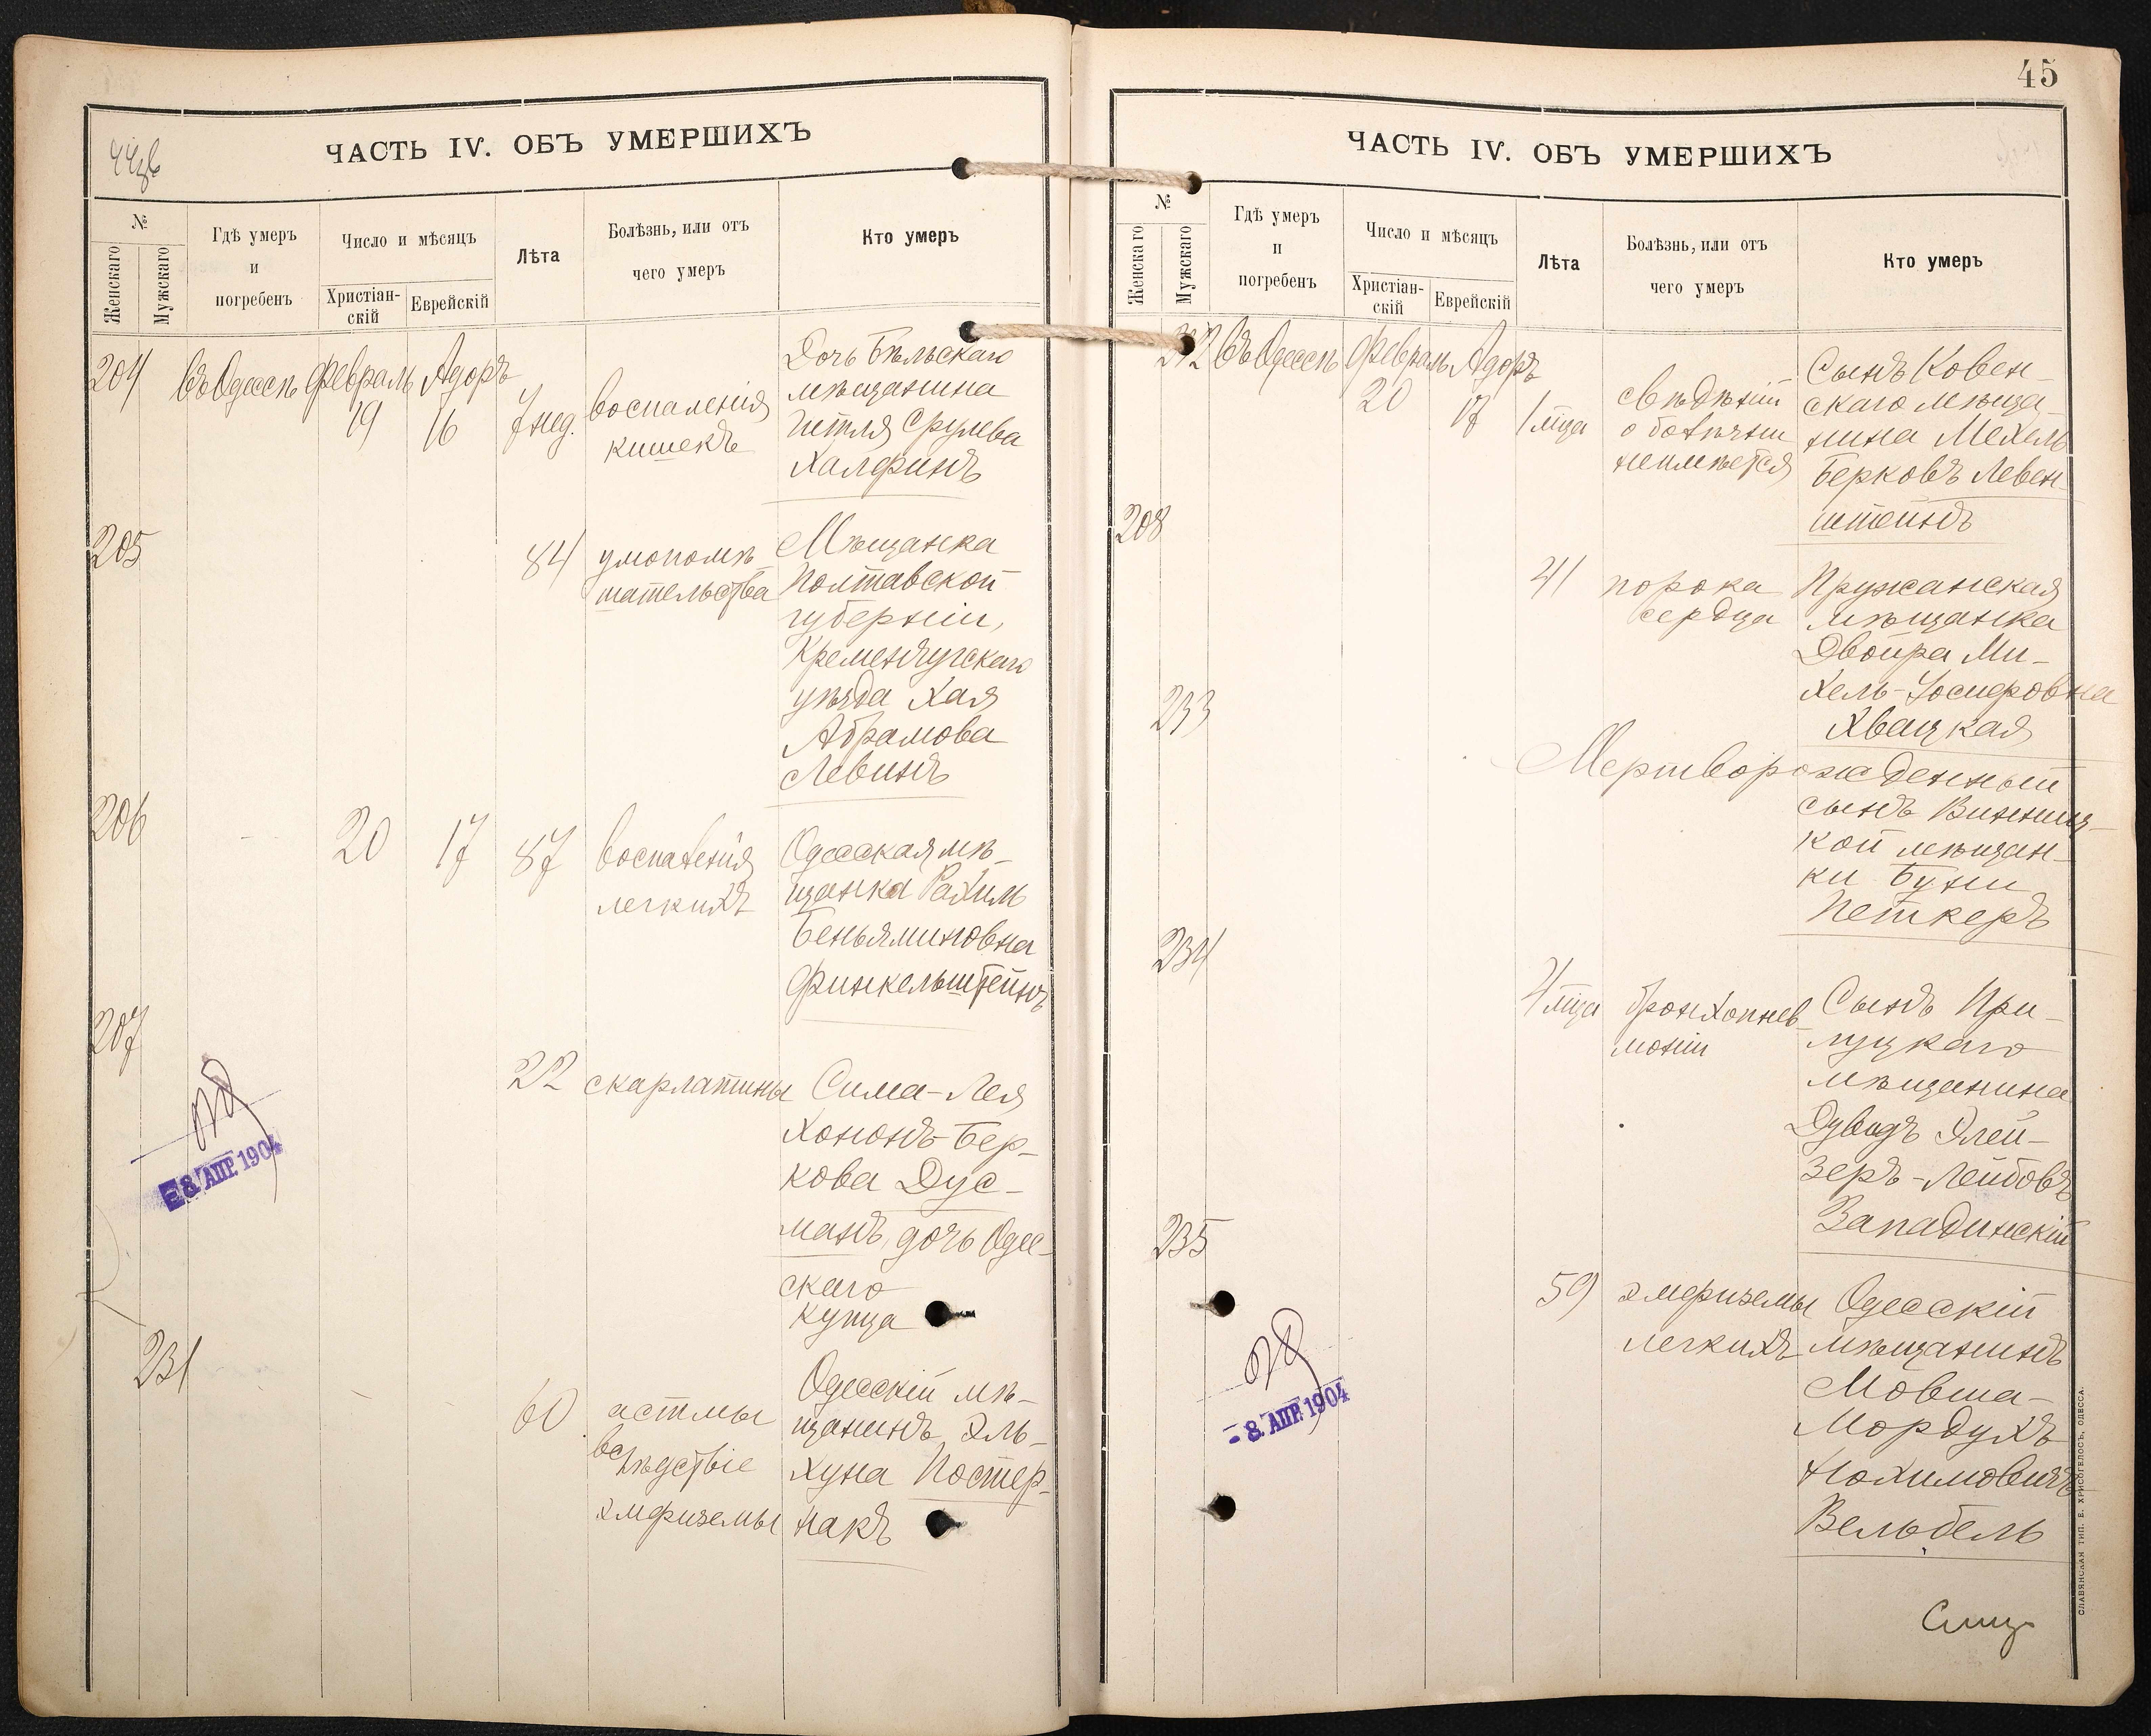 ЧАСТЬ IV. ОБЪ УМЕРШИХЪ
№
Женскаго
Мужскаго
Гдѣ умеръ
и
погребенъ
Число и мѣсяцъ
Христіан-
скій
Еврейскій
Лѣта
Болѣзнь, или отъ
чего умеръ
Кто умеръ
204
въ Одессѣ
Февраль
19
Адоръ
16
7 нед.
воспаленія
кишекъ
Дочь Бѣльскаго
мѣщанина
Гитля Срулева
Халфинъ
205
84
умопомѣ
шательства
Мѣщанка
Полтавской
губерніи,
Кременчугскаго
уѣзда Хая
Абрамова
Левинъ
206
20
17
87
воспаленія
легкихъ
Одесская мѣ-
щанка Рахиль
Беньяминовна
Финкельштейнъ
207
22
скарлатины
Сима-Лея
Хононъ-Бер-
кова Дус-
манъ, дочь Одес-
скаго
купца
8 АПР. 1904
231
60
астмы
вслѣдствіе
эмфиземы
Одесскій мѣ-
щанинъ Эль-
хуна Постер-
накъ
45
ЧАСТЬ IV. ОБЪ УМЕРШИХЪ
№
Женскаго
Мужскаго
Гдѣ умеръ
и
погребенъ
Число и мѣсяцъ
Христіан-
скій
Еврейскій
Лѣта
Болѣзнь, или отъ
чего умеръ
Кто умеръ
въ Одессѣ
Февраль
20
Адоръ
17
1 мца
свѣдѣній
о болѣзни
неимѣется
Сынъ Ковен-
скаго мѣща-
нина Мехель
Берковъ Левен-
штейнъ
208
41
порока
сердца
Пружанская
мѣщанка
Двойра Ми-
хель-Іосифовна
Хвацкая
233
Мертворожденный
сынъ Винниц-
кой мѣщан-
ки Буни
Петкеръ
234
4 мца
бронхопнев-
моніи
Сынъ При-
луцкаго
мѣщанина
Дувидъ Элей-
зеръ-Лейбовъ
Западинскій
235
59
эмфиземы
легкихъ
Одесскій
мѣщанинъ
Мовша-
Мордухъ
Нохимовичъ
Вельбель
- 8 АПР. 1904
СЛАВЯНСКАЯ ТИП. Е. ХРИСОГЕЛОСЪ, ОДЕССА.